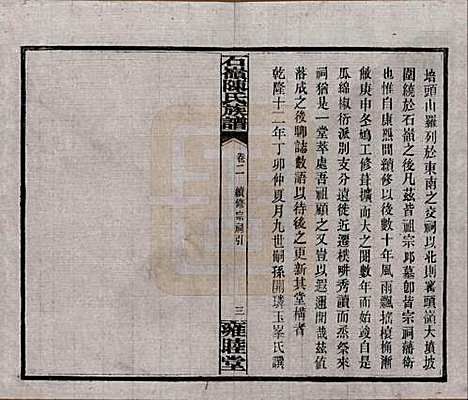 培頭山羅列於東南之交祠以北則黃頭大墳坡
圍繞於石嶺之後凡茲皆祖宗邱墓卽皆宗祠藩衛
也惟自康熙間續修以後數十年風雨飄搖榱桷漸
敝庚申冬鳩工修葺擴而大之閱數年而始竣自是
瓜綿椒衍派別支分遠徙近遷樸畊秀讀而烝祭來
祠猶是一堂萃處吾祖顧之又豈以遐邇開茲值
落成之後聊誌數語以待後之更新其堂構者
乾隆十二年丁卯仲夏月九世嗣孫開璘玉峯氏譔
石嶺陳氏族譜
卷二
續修宗祠引
三
雍睦堂